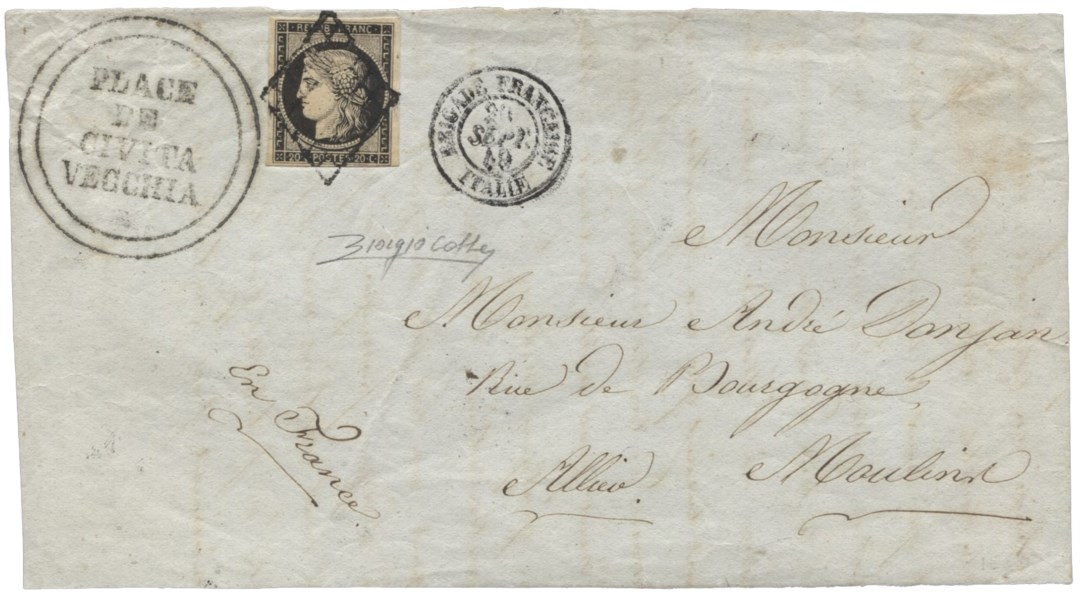 PLACE
DE
CIVITA
VECCHIA
REPUB FRANC
20 POSTES 20 C
BRIGADE FRANÇAISE
SEPT.
49
ITALIE
Monsieur
Monsieur André Donjan
Rue de Bourgogne,
Allier. Moulins
En France.